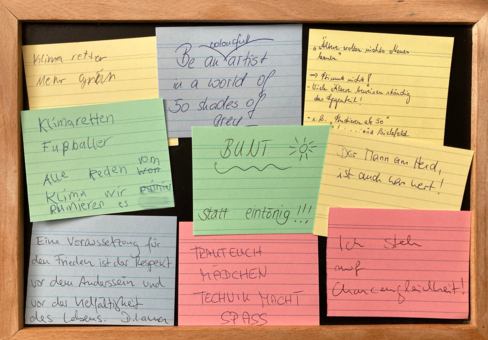 Klima retter
Mehr grün
colourful
Be an artist
in a world of
50 shades of
grey
"Ältere wollen nichts Neues
lernen"
→ Stimmt nicht!
- Viele Ältere beweisen ständig
das Gegenteil!
- z.B. ab 50"
Bielefeld
Klimaretten
Fußballer
Alle Reden vom
Klima wir
Ruinieren es
BUNT
statt eintönig!!!
Der Mann am Herd,
ist auch was wert!
Eine Voraussetzung für
den Frieden ist der Respekt
vor dem Anderssein und
vor der Vielfältigkeit
des Lebens. D. Lama
TRAUT EUCH
MÄDCHEN
TECHNIK MACHT
SPASS
Ich steh
auf
Chancengleichheit!